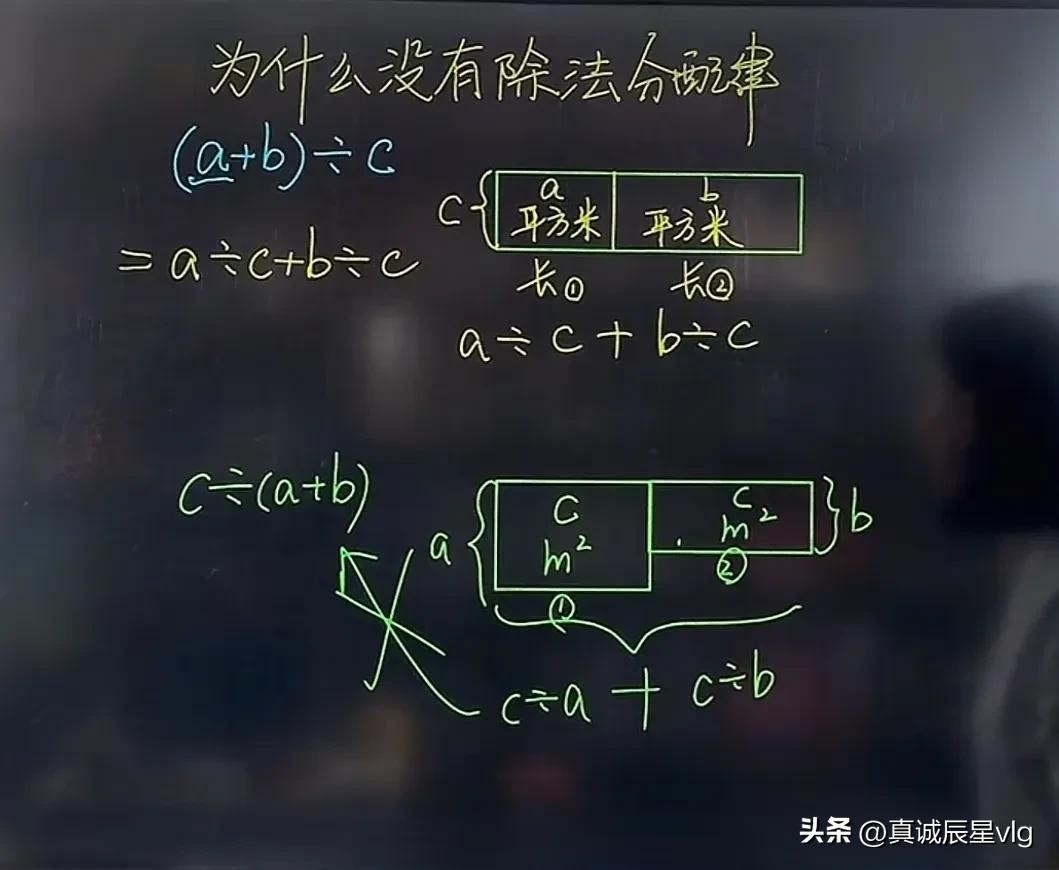 为什么没有除法分配律
(a+b)÷c
=a÷c+b÷c
c{ a b
平方米 平方米
长① 长②
a÷c+b÷c
c÷(a+b)
a{ c c }b
m² m²
① ②
c÷a+c÷b
头条 @真诚辰星vlg